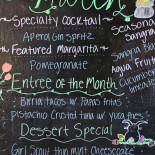 ~Specialty cocktail~
Aperol Gin Spritz
~Featured Margarita~
Pomegranate
Entree of the Month
Birria tacos w/ Yuca fries
Pistachio Crusted tuna w/ Yuca fries
Dessert Special
Girl Scout thin mint Cheesecake
Seasonal
Sangria
Agua Fruit
Cucumber